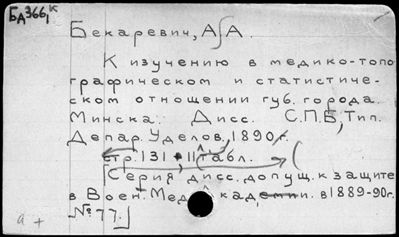 БД366,К
Бекаревич, А∫А.
К изучению в медико-топо
графическом и статистиче-
ском отношении губ. города
Минска. Дисс. С.П.Б, Тип.
Депар. Уделов, 1890 г.
стр. 131 + II табл. (
[Серия дисс. допущ. к защите
в Воен. Мед. кадемии. в 1889-90г.
№77.]
а +